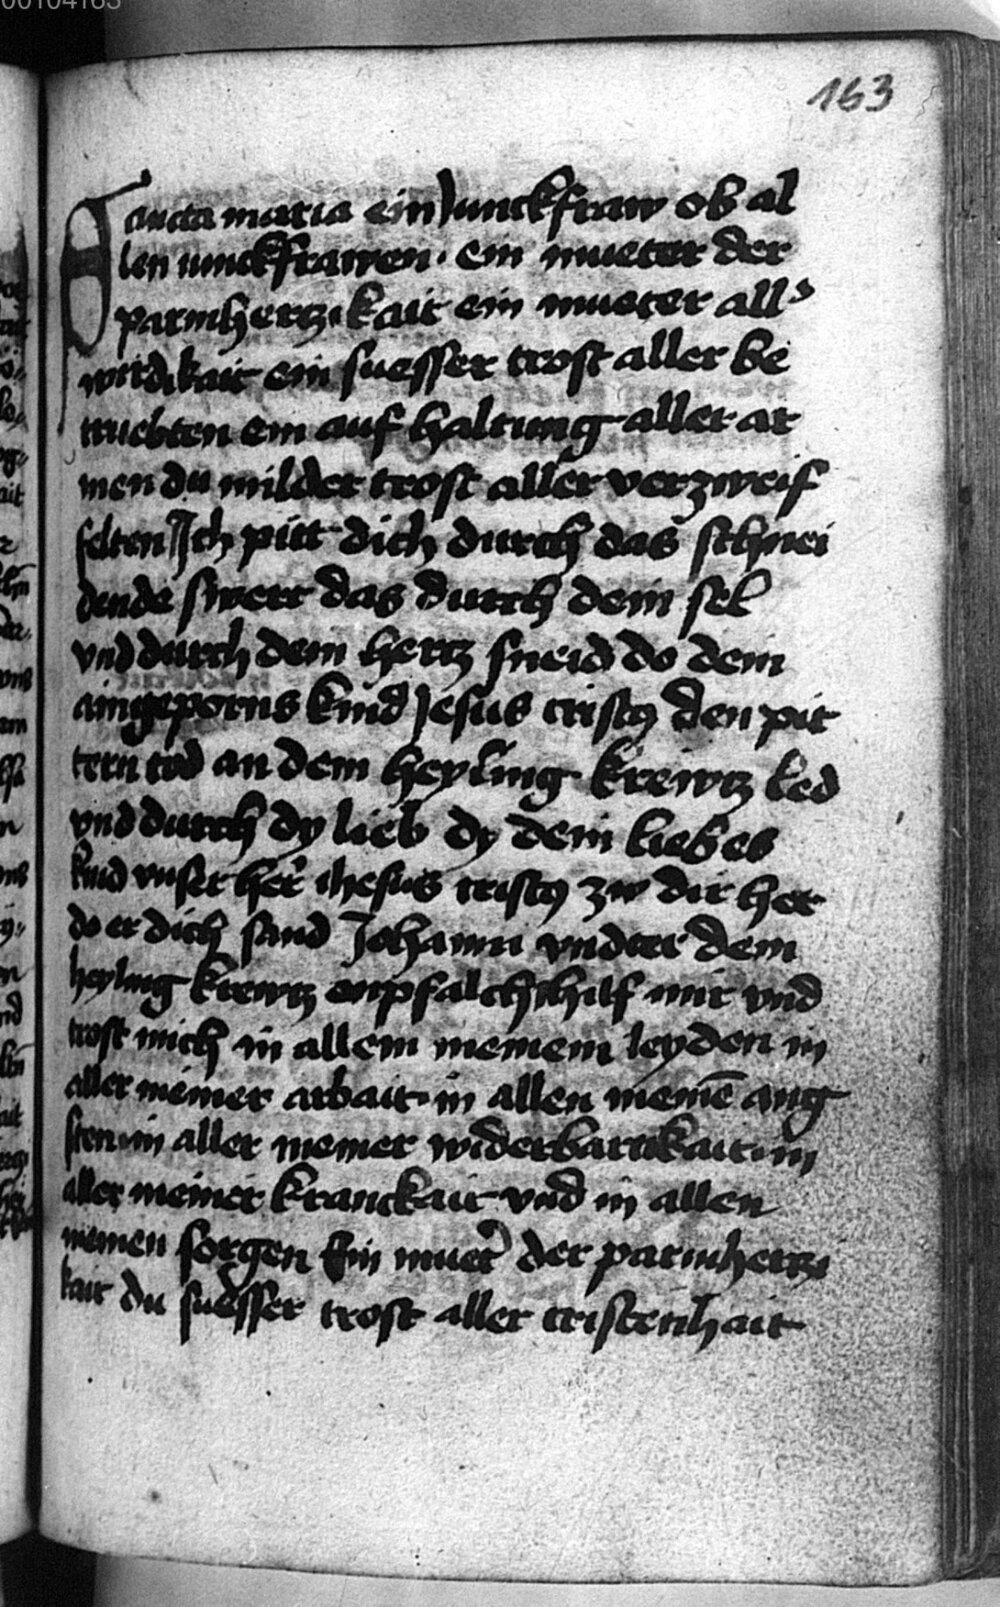 00104163
163
Sancta maria ein Junckfraw ob al
len iunckfrawen · ein mueter der
parmhertzikait ein mueter all
wirdikait ein suesser trost aller be
truebten ein auf haltung aller ar
men du milder trost aller verzweif
felten Ich pitt dich durch das schnei
dende swert das durch dein sel
vnd durch dein hertz sneid do dein
aingeporns kind Jesus cristus den pit
tern tod an dem heyling krewtz led
vnd durch dy lieb dy dein liebes
kind vnser her ihesus cristus zw dir het
do er dich sand Johanni vnder dem
heyling krewtz enpfalch hilf mir vnd
trost mich in allem meinem leyden in
aller meiner arbait in allen meinē ang
sten in aller meiner widerbartikait in
aller meiner kranckait vnd in allen
meinen sorgen Ein muet der parmhertzi
kait du suesser trost aller cristenhait